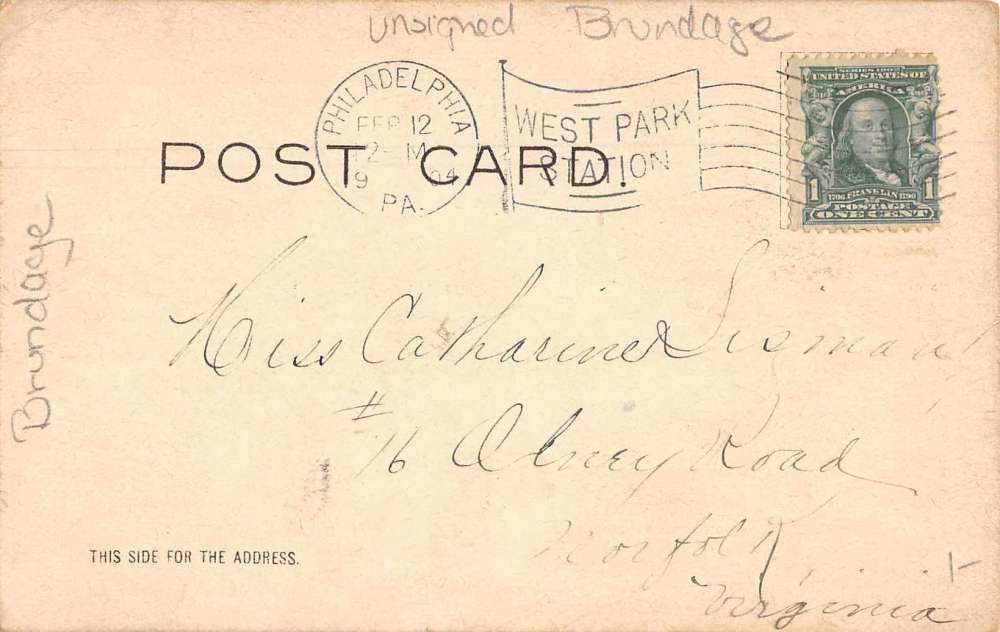 unsigned Brundage
PHILADELPHIA
PA.
FEB 12
2- M
19 04
WEST PARK
STATION
SERIES 1902
UNITED STATES OF
AMERICA
1
1706 FRANKLIN 1790
1
POSTAGE
ONE CENT
POST CARD.
Brundage
Miss Catharine Sigman
#
16 Olney Road
Norfolk
Virginia
THIS SIDE FOR THE ADDRESS.